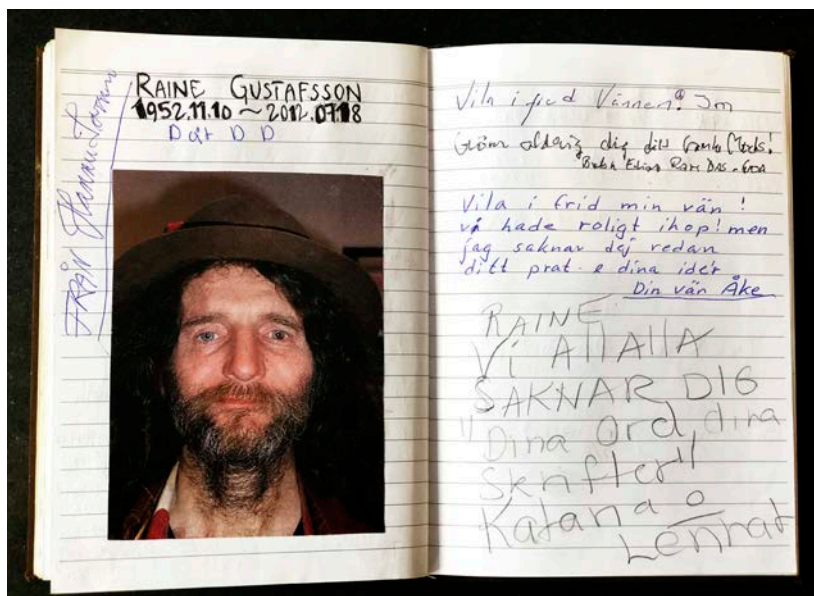 RAINE GUSTAFSSON
1952.11.10 ~ 2012.07.18
D D
FRÅN
Vila i frid Vännen! Jm
aldrig dig
Vila i frid min vän!
vi hade roligt ihop! men
jag saknar dej redan
ditt prat. e dina idér
Din vän Åke
RAINE
Vi AllAllA
SAKNAR DIG
"Dina Ord, dina
Skrifter"
Katana o
Lennat